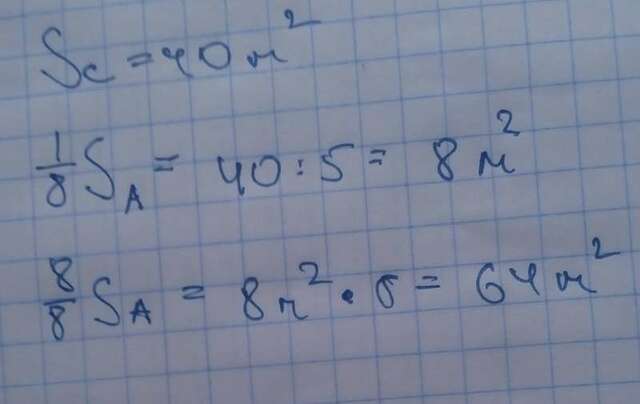 Sc = 40 м²
1/8 S_A = 40 : 5 = 8 м²
8/8 S_A = 8 м² · 8 = 64 м²